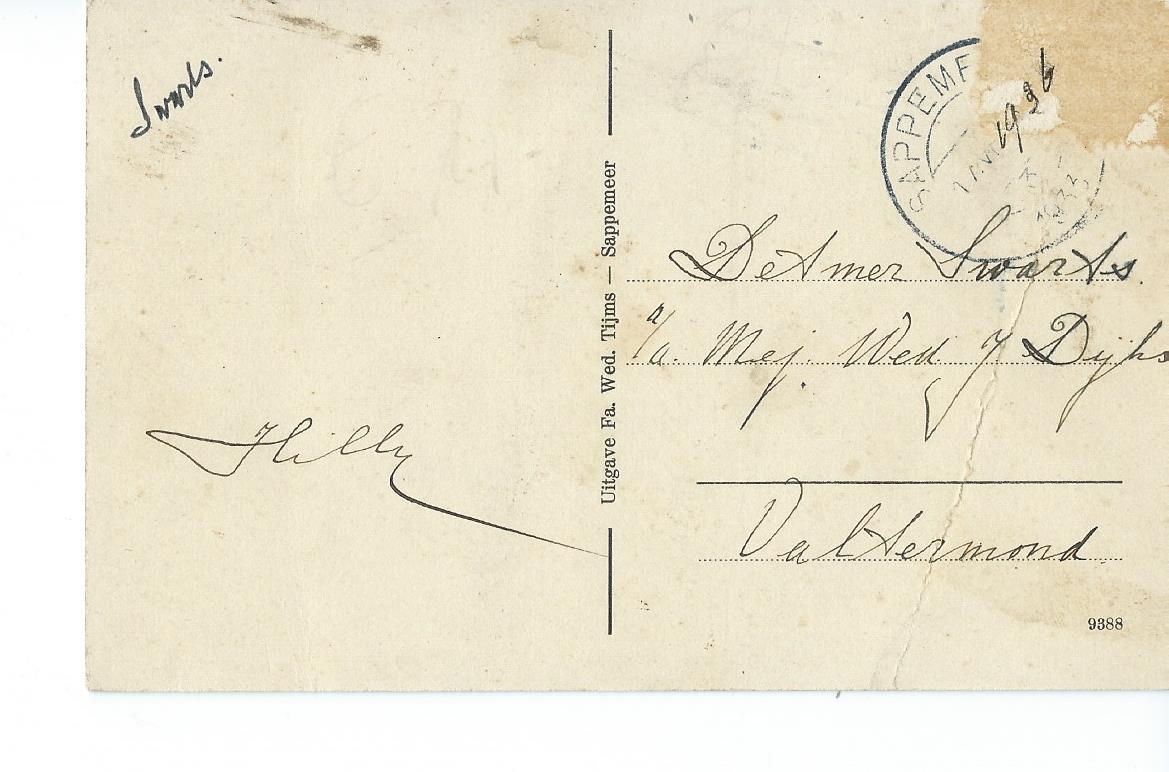 Swarts.
Hilly
Uitgave Fa. Wed. Tijms — Sappemeer
SAPPEME
1936
1933
Detmer Swarts.
a/a. Mej. Wed J Dijks
Valtermond
9388